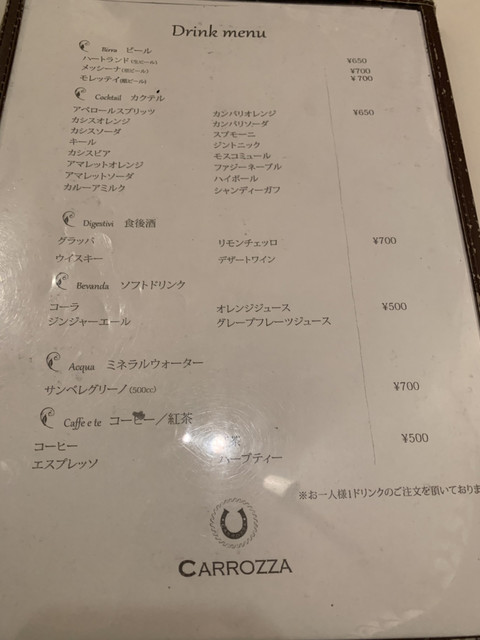 Drink menu
Birra ビール
ハートランド(生ビール) ¥650
メッシーナ(瓶ビール) ¥700
モレッティ(瓶ビール) ¥700
Cocktail カクテル
アペロールスプリッツ カンパリオレンジ ¥650
カシスオレンジ カンパリソーダ
カシスソーダ スプモーニ
キール ジントニック
カシスビア モスコミュール
アマレットオレンジ ファジーネーブル
アマレットソーダ ハイボール
カルーアミルク シャンディーガフ
Digestivi 食後酒
グラッパ リモンチェッロ ¥700
ウイスキー デザートワイン
Bevanda ソフトドリンク
コーラ オレンジジュース ¥500
ジンジャーエール グレープフルーツジュース
Acqua ミネラルウォーター
サンペレグリーノ(500cc) ¥700
Caffe e te コーヒー/紅茶
コーヒー 茶 ¥500
エスプレッソ ハーブティー
※お一人様1ドリンクのご注文を頂いておりま
CARROZZA